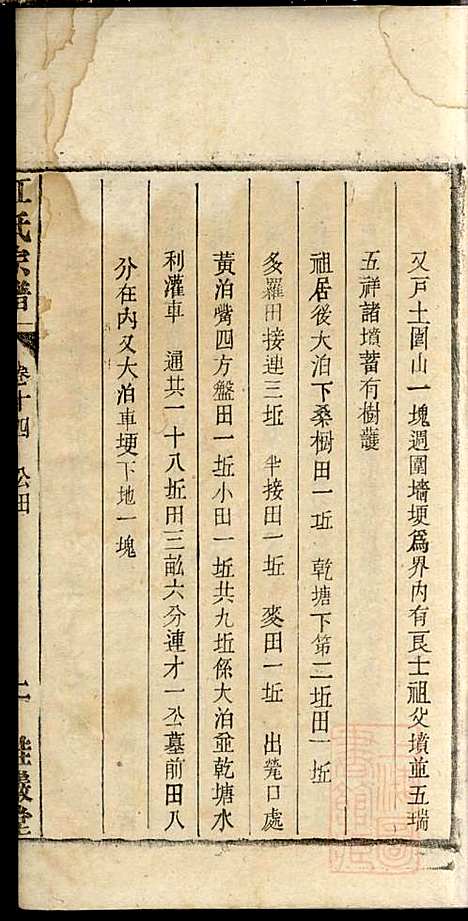 又戸土圍山一塊週圍墻埂爲界內有艮士祖父墳並五瑞
五祥諸墳蓄有樹護
祖居後大泊下桑樹田一坵 乾塘下第二坵田一坵
多羅田接連三坵 半接田一坵 麥田一坵 出筧口處
黃泊嘴四方盤田一坵小田一坵共九坵係大泊並乾塘水
利灌車 通共一十八坵田三畝六分連才一公墓前田八
分在內又大泊車埂下地一塊
江氏宗譜 卷十四 公田